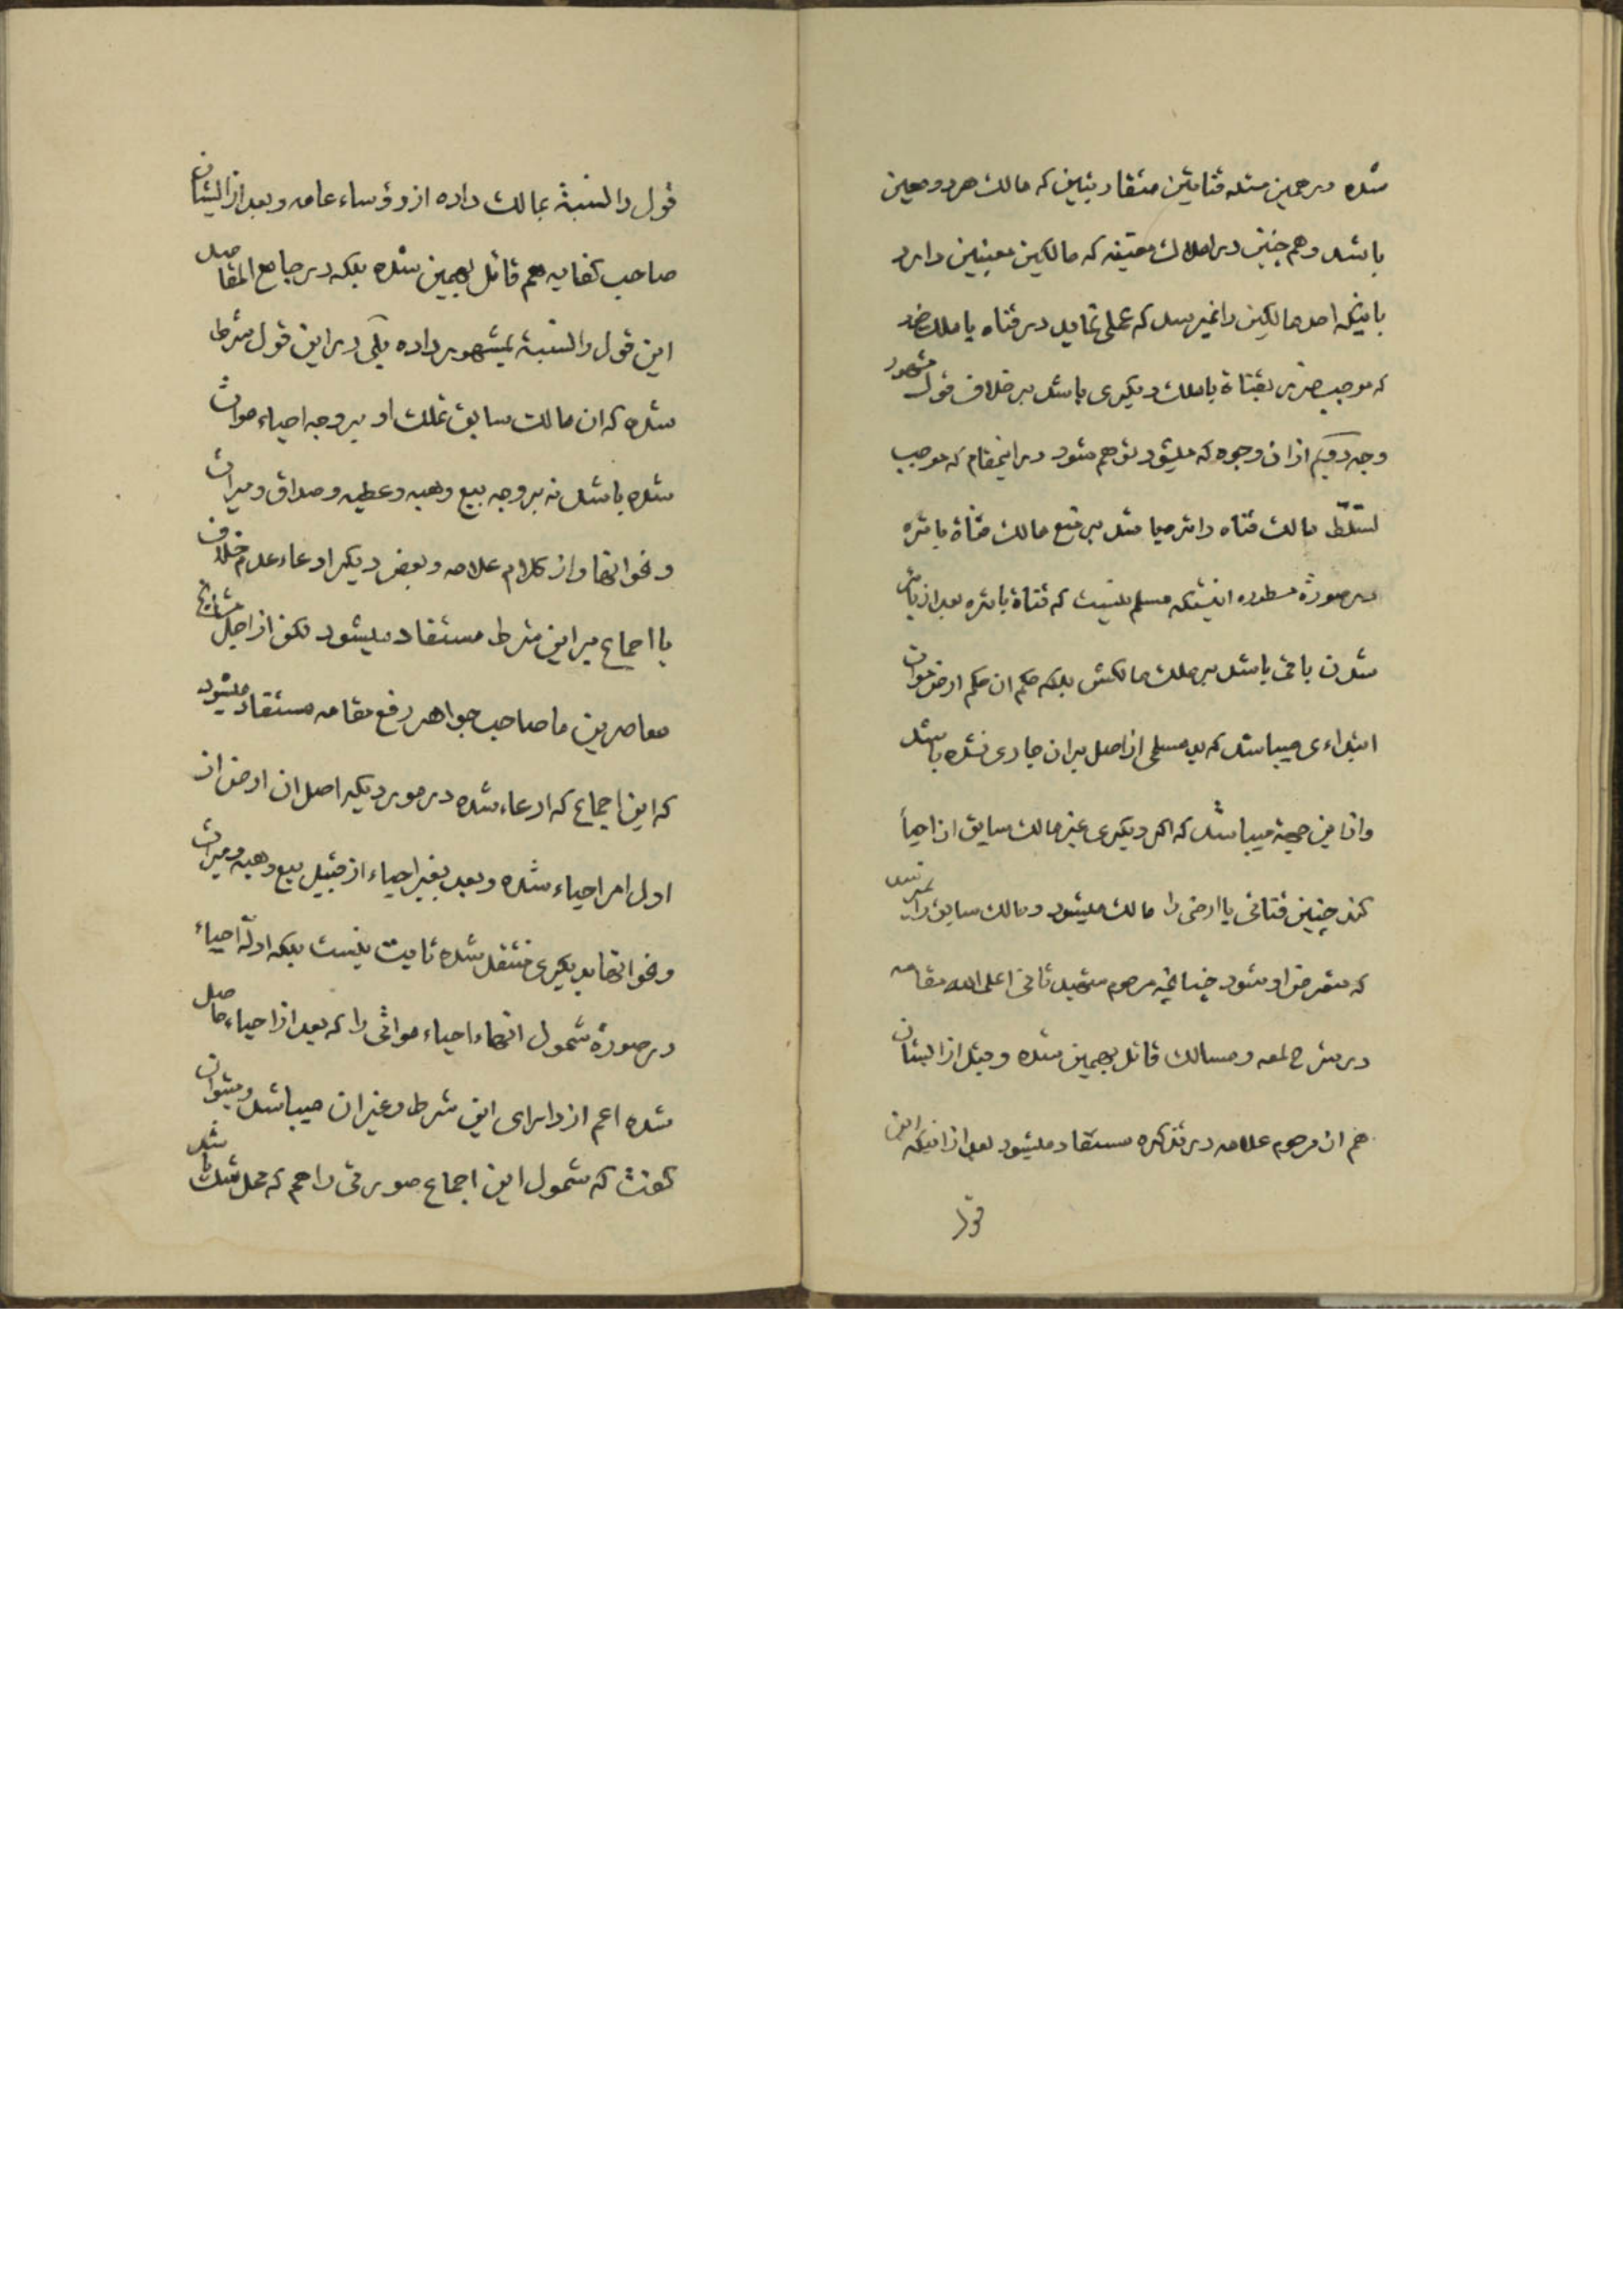 شده در همین مسئله قناتین متقاربتین که مالک هر دو معین
باشد و هم چنین در املاک معینه که مالکین معینین دارد
باینکه احد مالکین را نمیرسد که عملی نماید در قناه یا ملک خود
که موجب ضرر بقناة یا ملک دیگری باشد بر خلاف قول مشهور
وجه دویّم از ان وجوه که میشود توهم شود در اینمقام که موجب
تسلّط مالک قناه دائر میباشد بر منع مالک قناة بائره
در صورة مسطوره اینستکه مسلم نیست که قناة بائره بعد از بائر
شدن باقی باشد بر ملک مالکش بلکه حکم ان حکم ارض موات
ابتداءی میباشد که ید مسلمی از اصل بر ان جاری نشده باشد
و از این جهة میباشد که اگر دیگری غیر مالک سابق انرا احیاء
کند چنین قناتی یا ارضی را مالک میشود و مالک سابق را نمیرسد
که متعرض او شود چنانچه مرحوم شهید ثانی اعلی الله مقامه
در شرح لمعه و مسالک قائل بهمین شده و قبل از ایشان
هم از مرحوم علامه در تذکره مستفاد میشود بعد از اینکه این
قول
قول را نسبة بمالک داده از رؤساء عامه و بعد از ایشان
صاحب کفایه هم قائل بهمین شده بلکه در جامع المقاصد
این قول را نسبة بمشهور داده بلی در این قول شرط
شده که ان مالک سابق تملک او بر وجه احیاء موات
شده باشد نه بر وجه بیع و هبه و عطیه و صداق و میراث
و نحو انها و از کلام علامه و بعض دیگر ادعاء عدم خلاف
یا اجماع بر این شرط مستفاد میشود لکن از اجل مشایخ
معاصرین ما صاحب جواهر رفع مقامه مستفاد میشود
که این اجماع که ادعاء شده در موردیکه اصل ان ارض از
اول امر احیاء شده و بعد بغیر احیاء از قبیل بیع و هبه و میراث
و نحو انها بدیگری منتقل شده ثابت نیست بلکه ادلّه احیاء
در صورة شمول انها احیاء مواتی را که بعد از احیاء حاصل
شده اعم از دارای این شرط و غیر ان میباشد و میتوان
گفت که شمول این اجماع صورتی را هم که محل شک باشد